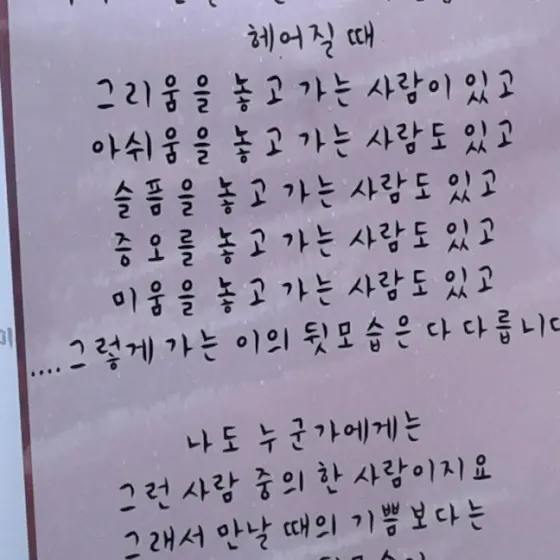 헤어질 때
그리움을 놓고 가는 사람이 있고
아쉬움을 놓고 가는 사람도 있고
슬픔을 놓고 가는 사람도 있고
증오를 놓고 가는 사람도 있고
미움을 놓고 가는 사람도 있고
....그렇게 가는 이의 뒷모습은 다 다릅니다
나도 누군가에게는
그런 사람 중의 한 사람이지요
그래서 만날 때의 기쁨보다는